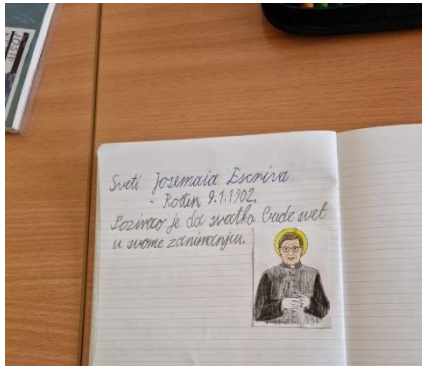 Sveti Josemaia Escriva
- Rođen 9.1.1902.
Pozivao je da svatko bude svet
u svome zanimanju.